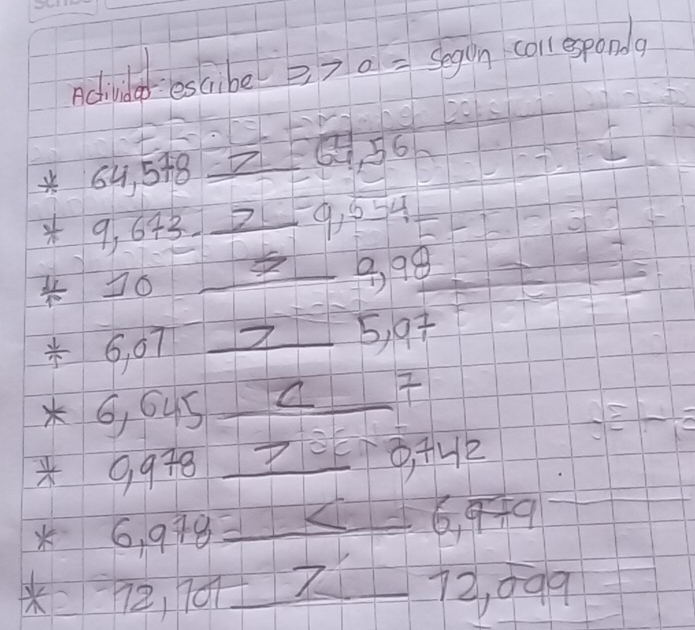 Actividad: escribe >, > o = según corresponda
* 64,578 > 64,56
* 9,673 > 9,654
* 10 > 9,98
* 6,07 > 5,97
* 6,645 < 7
* 0,978 > 0,742
* 6,978 < 6,979
* 12,101 > 12,099